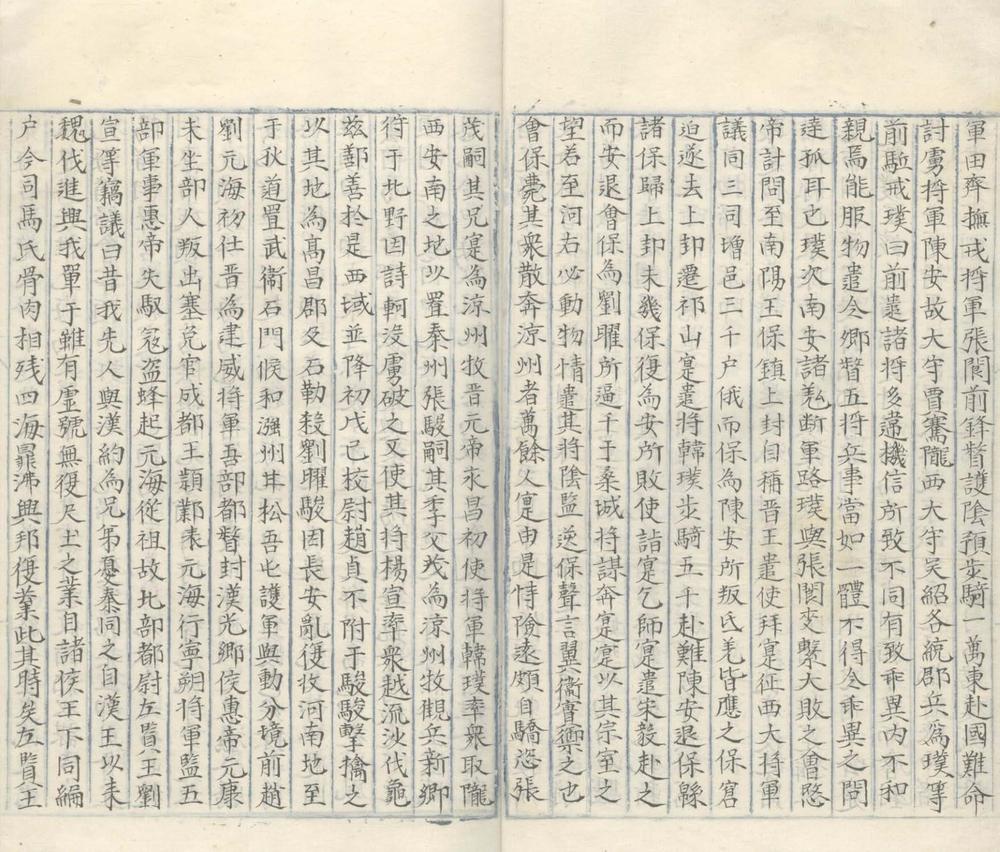 軍田齊撫戎将軍張閬前鋒督護陰預步騎一萬東赴國難命
討虜将軍陳安故大守賈騫隴西大守吴紹各統郡兵為璞䓁
前駈戒璞曰前遣諸将多違機信所致不同有致乖異内不和
親焉能服物遣今卿督五将兵事當如一體不得令乖異之問
達孤耳也璞次南安諸羗断軍路璞與張閬夾擊大敗之會愍
帝訃問至南陽王保鎮上封自稱晋王遣使拜寔征西大将軍
議同三司増邑三千户俄而保為陳安所叛氐羌皆應之保窘
迫遂去上邽遷祁山寔遣将韓璞步騎五千赴難陳安退保緜
諸保歸上邽未幾保復為安所敗使詣寔乞師寔遣宋毅赴之
而安退會保為劉曜所逼千于桑城将謀奔寔寔以其宗室之
望若至河右必動物情遣其将陰監逆保聲言翼衛實禦之也
會保薨其衆散奔涼州者萬餘人寔由是恃險逺頗自驕恣張
茂嗣其兄寔為涼州牧晋元帝永昌初使将軍韓璞率衆取隴
西安南之地以置秦州張駿嗣其季父茂為涼州牧觀兵新鄉
狩于北野因討軻没虜破之又使其将楊宣率衆越流沙伐龜
兹鄯善於是西域並降初戊己校尉趙貞不附于駿駿擊擒之
以其地為髙昌郡及石勒殺劉曜駿因長安亂復收河南地至
于狄道置武衛石門候和漒州甘松吾屯護軍與動分境前趙
劉元海初仕晋為建威将軍吾部都督封漢光鄉侯惠帝元康
末坐部人叛出塞免官成都王穎鄴表元海行寧朔将軍監五
部軍事惠帝失馭冦盗蜂起元海從祖故北部都尉左賢王劉
宣䓁竊議曰昔我先人與漢約為兄弟憂泰同之自漢王以来
魏伐進興我單于雖有虚號無復尺土之業自諸侯王下同編
户今司馬氏骨肉相残四海鼎沸興邦復業此其時矣左賢王